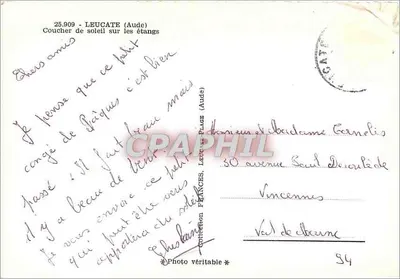 25.909 - LEUCATE (Aude)
Coucher de soleil sur les étangs
Chers amis
Je pense que ce petit
congé de Pâques c'est bien
passé. Il fait beau mais
il y a beau de vent.
Je vous envoie ce petit
qui peut être vous
apportera du soleil
Ghislain
Collection FRANCES, LEUCATE-PLAGE (Aude)
*Photo véritable*
LEUCATE
Monsieur et Madame Cornelis
30 avenue Paul Déroulède
Vincennes
Val de Marne
94
CPARAMA.COM